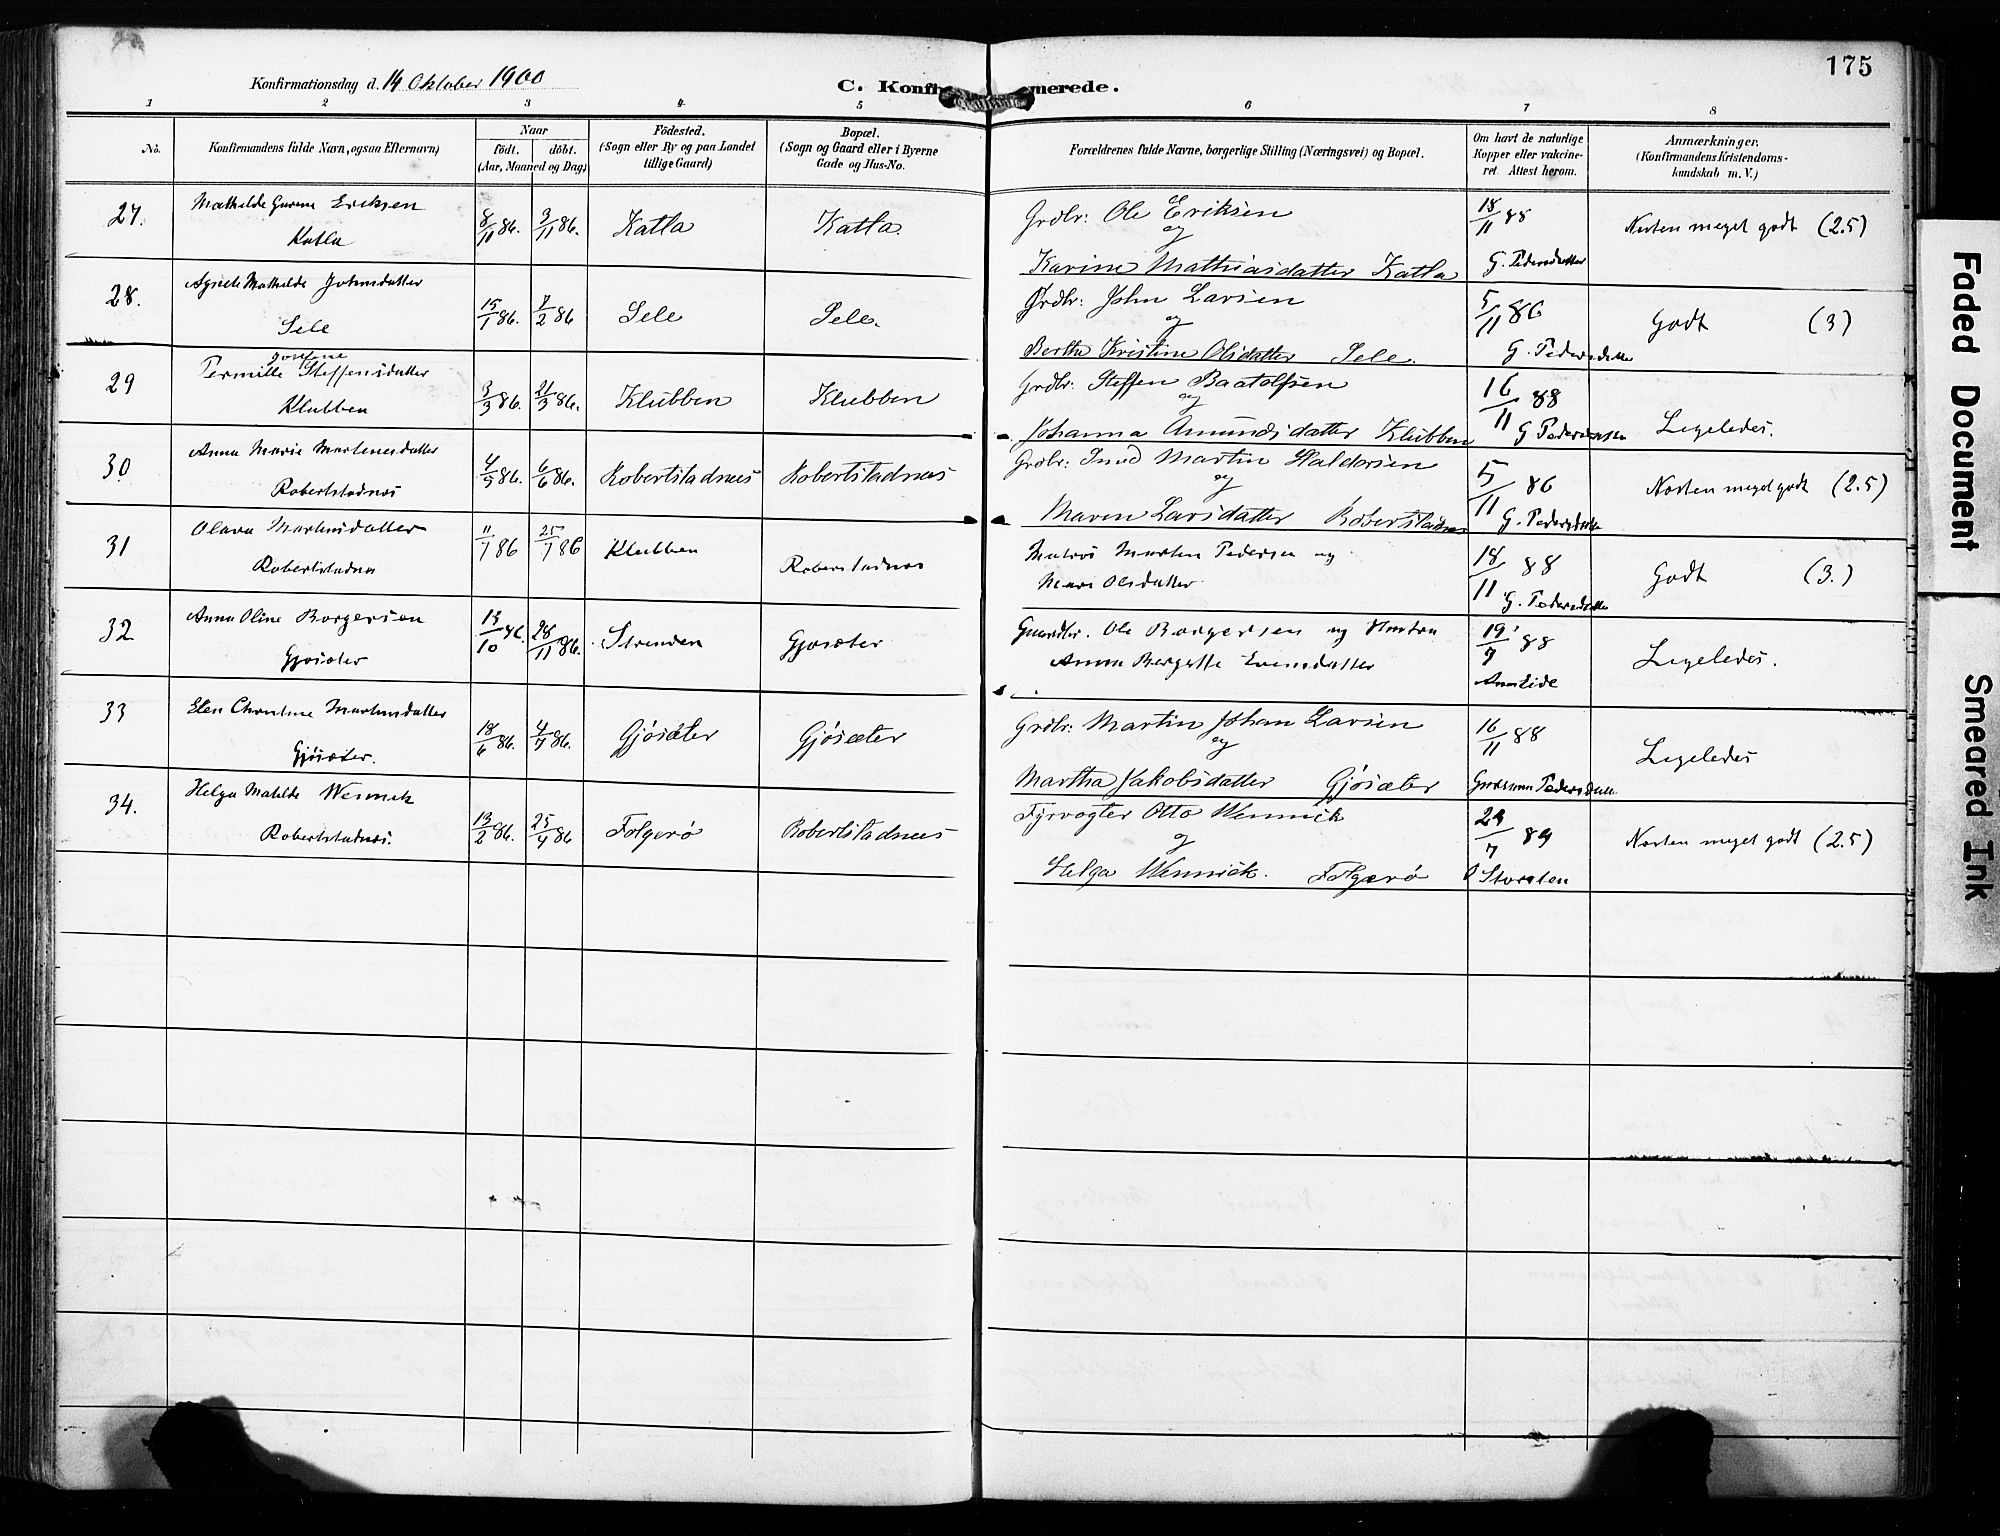 175
Konfirmationsdag d. 14 Oktober 1900
C. Konfir merede.
1 2 3 4 5 6 7 8
No.
Konfirmandens fulde Navn, ogsaa Efternavn)
Naar
födt. döbt.
(Aar, Maaned og Dag)
Födested.
(Sogn eller By og paa Landet
tillige Gaard)
Bopæl.
(Sogn og Gaard eller i Byerne
Gade og Hus-No.
Forældrenes fulde Navne, borgerlige Stilling (Næringsvei) og Bopæl.
Om havt de naturlige
Kopper eller vakcine-
ret. Attest herom.
Anmærkninger.
(Konfirmandens Kristendoms-
kundskab m. V.)
27. Mathilde Eriksen
Katla
8/11 86. 3/11 86. Katla Katla.
Grdbr: Ole Eriksen
og
Karine Mathiasdatter Katla
18/11 88
G. Pedersdatter
Næsten meget godt (2.5)
28. Agnete Mathilde Johnsdatter
Sele
15/1 86. 7/2 86 Sele Sele.
Grdbr: John Larsen
og
Berthe Kristine Olsdatter Sele.
5/11 86
G. Pedersdatter
Godt (3)
29 Pernille Steffensdatter
Klubben
3/3 86. 21/3 86. Klubben Klubben
Grdbr: Steffen Baatolfsen
og
Johanna Amundsdatter Klubben
16/11 88
G Pedersdatter
Ligeledes.
30 Anna Marie Martinesdatter
Robertstadnes
4/5 86. 6/6 86. Robertstadnes Robertstadnes
Grdbr: Martin Haldorsen
og
Maren Larsdatter Robertstadnes
5/11 86
G. Pedersdatter
Næsten meget godt (2.5)
31 Olava Martinsdatter
Robertstadnes
11/1 86 25/1 86 Klubben Robertstadnes
Matros Martin Pedersen og
Mari Olsdatter
18/11 88
G. Pedersdatter
Godt (3.)
32 Anna Oline Borgersen
Gjøsæter
13/10 86. 28/11 86. Stranden Gjøsæter
Gaardbr. Ole Borgersen og Hustru
Anna Bergitte Evensdatter
19/7 88
Ligeledes.
33 Elen Christine Martinsdatter
Gjøsæter.
18/6 86. 4/7 86. Gjøsæter Gjøsæter
Grdbr: Martin Johan Larsen
og
Martha Jakobsdatter Gjøsæter
16/11 88
Pedersdatter
Ligeledes
34. Helga Matilde Wennick
Robertstadnes.
13/2 86. 25/4 86 Folgerø Robertstadnes
Fyrvogter Otto Wennick
og
Helga Wennick. Folgerø
29/7 89
Næsten meget godt (2.5)
Faded Document
Smeared Ink